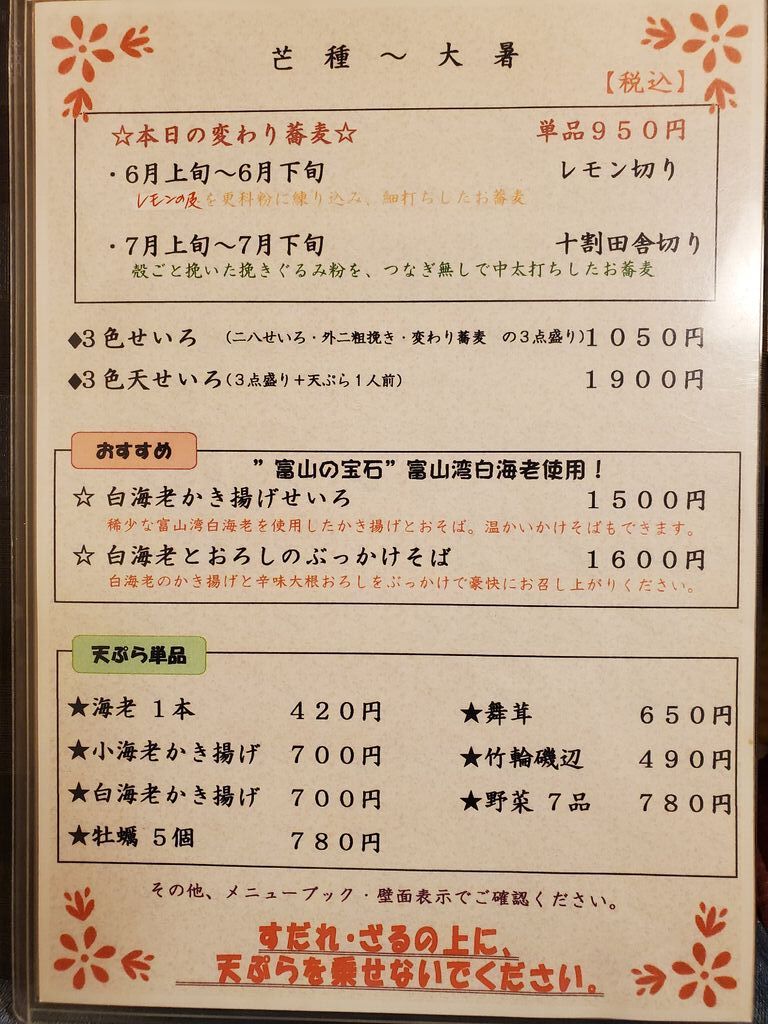 芒種～大暑
【税込】
☆本日の変わり蕎麦☆ 単品９５０円
・６月上旬～６月下旬 レモン切り
レモンの皮を更科粉に練り込み、細打ちしたお蕎麦
・７月上旬～７月下旬 十割田舎切り
殻ごと挽いた挽きぐるみ粉を、つなぎ無しで中太打ちしたお蕎麦
◆３色せいろ （二八せいろ・外二粗挽き・変わり蕎麦 の３点盛り）１０５０円
◆３色天せいろ（３点盛り＋天ぷら１人前） １９００円
おすすめ
”富山の宝石”富山湾白海老使用！
☆ 白海老かき揚げせいろ １５００円
稀少な富山湾白海老を使用したかき揚げとおそば。温かいかけそばもできます。
☆ 白海老とおろしのぶっかけそば １６００円
白海老のかき揚げと辛味大根おろしをぶっかけで豪快にお召し上がりください。
天ぷら単品
★海老 １本 ４２０円
★小海老かき揚げ ７００円
★白海老かき揚げ ７００円
★牡蠣 ５個 ７８０円
★舞茸 ６５０円
★竹輪磯辺 ４９０円
★野菜 ７品 ７８０円
その他、メニューブック・壁面表示でご確認ください。
すだれ・ざるの上に、
天ぷらを乗せないでください。